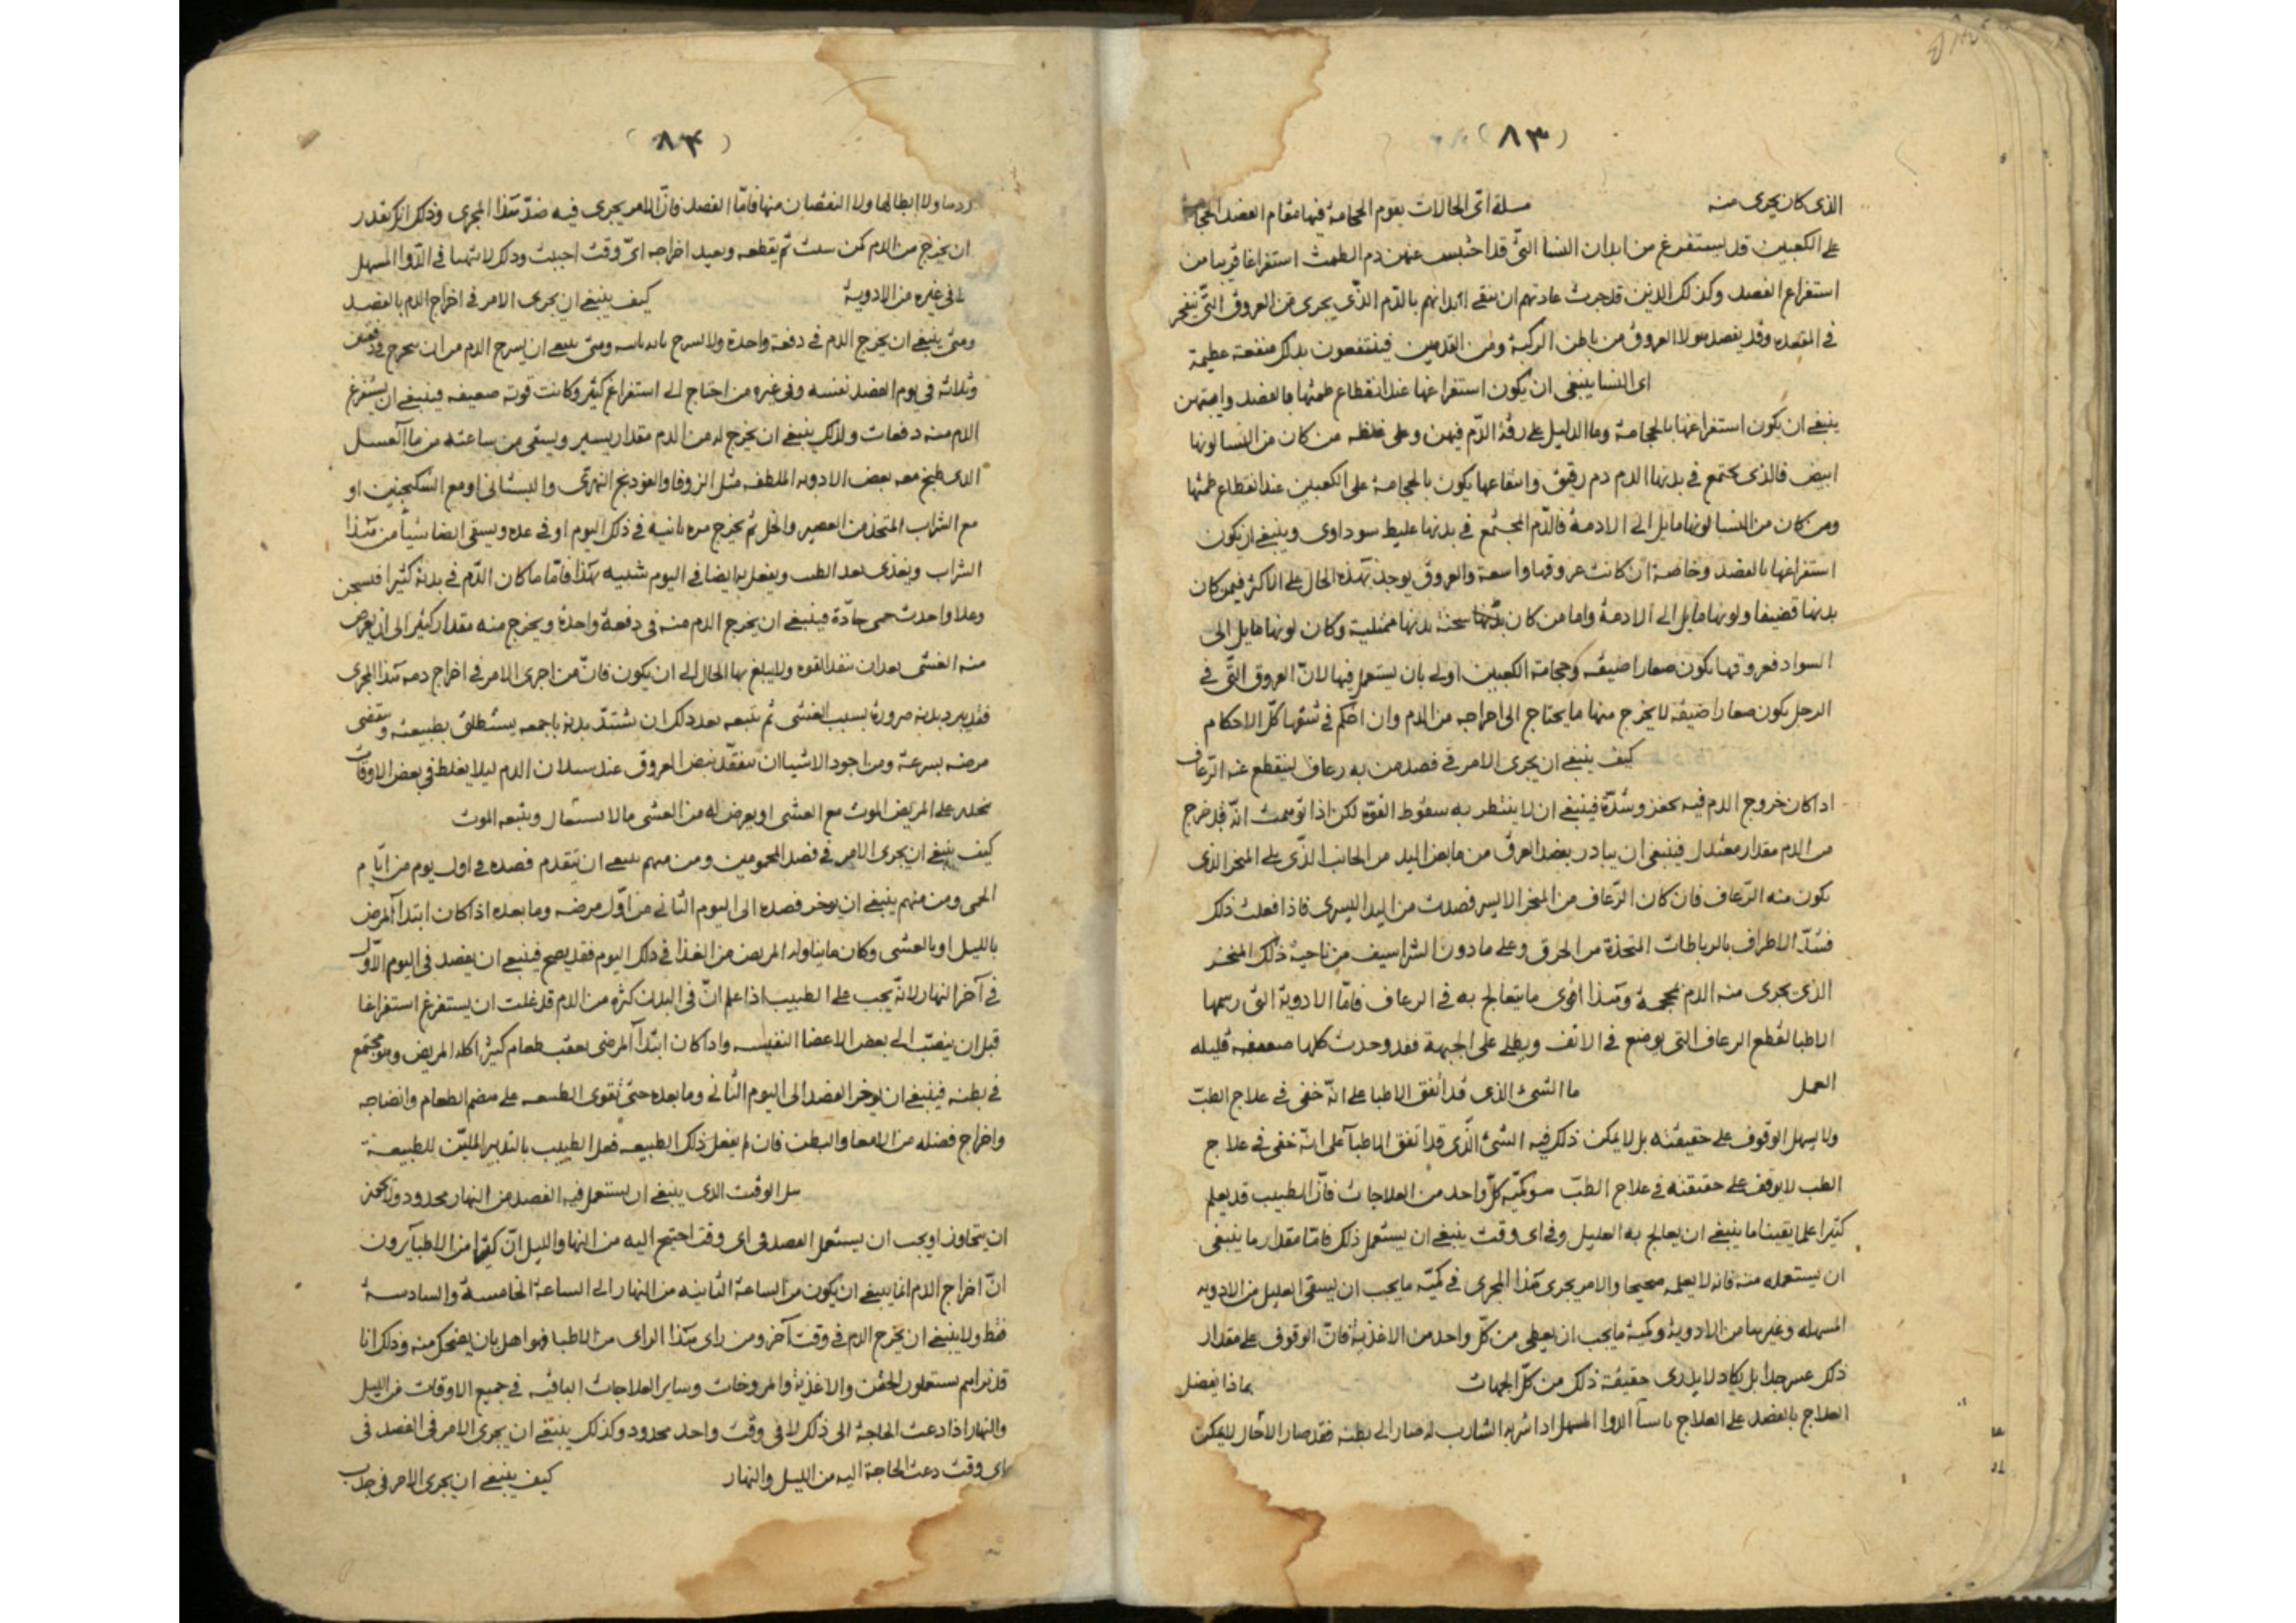 (٨٣)
الذى كان يجرى منه مسلة اى الحالات يقوم الحجامة فيها مقام الفصد الحجامة
على الكعبين قد يستفرغ من ابدان النسا التى قد احتبس عنهن دم الطمث استفراغا قريبا من
استفراغ الفصد وكذلك الذين قد جرت عادتهم ان ينقى ابدانهم بالدم الذى يجرى من العروق التى تنفجر
فى المقعده وقد يفصد هولا العروق من باطن الركبة ومن القدمين فينتفعون بذلك منفعة عظيمة
اى النسا ينبغى ان يكون استفراغها عند انقطاع طمثها بالفصد وايتهن
ينبغى ان يكون استفراغها بالحجامة وما الدليل على رقة الدم فيهن وعلى غلظه من كان من النسا لونها
ابيض فالذى يجتمع فى بدنها الدم دم رقيق وانتفاعها يكون بالحجامة على الكعبين عند انقطاع طمثها
ومن كان من النسا لونها مايل الى الادمة فالدم المجتمع فى بدنها غليظ سوداوى وينبغى ان يكون
استفراغها بالفصد وخاصة ان كانت عروقها واسعة والعروق يوجد بهذه الحال على الاكثر فيمن كان
بدنها قضيفا ولونها مايل الى الادمة واما من كان سحنة بدنها ممتلية وكان لونها مايل الى
السواد فعروقها يكون صغارا ضيقه وحجامة الكعبين اولى بان يستعمل فيها لان العروق التى فى
الرجل يكون صغارا ضيقة لا يخرج منها ما يحتاج الى اخراجه من الدم وان احكم فى شقها كل الاحكام
كيف ينبغى ان يجرى الامر فى فصد من به رعاف لينقطع عنه الرعاف
اذا كان خروج الدم فيه بحفز وشدة فينبغى ان لا ينتظر به سقوط القوة لكن اذا توهمت انه قد خرج
من الدم مقدار معتدل فينبغى ان يبادر بفصد العرق من مابض اليد من الجانب الذى على المنخر الذى
يكون منه الرعاف فان كان الرعاف من المنخر الايسر فصدت من اليد اليسرى فاذا فعلت ذلك
فشد الاطراف بالرباطات المتخذة من الخرق وعلى ما دون الشراسيف من ناحية ذلك المنخر
الذى يجرى منه الدم محجمة وهذا اقوى ما يتعالج به فى الرعاف فاما الادوية التى رسمها
الاطبا لقطع الرعاف التى يوضع فى الانف ويطلى على الجبهة فقد وجدت كلها ضعيفه قليله
العمل ما الشىء الذى قد اتفق الاطبا على انه خفى فى علاج الطب
ولا يسهل الوقوف على حقيقته بل لا يمكن ذلك فيه الشىء الذى قد اتفق الاطبا على انه خفى فى علاج
الطب لا يوقف على حقيقته فى علاج الطب هو كمية كل واحد من العلاجات فان الطبيب قد يعلم
كثيرا علما يقينا ما ينبغى ان يعالج به العليل وفى اى وقت ينبغى ان يستعمل ذلك فاما مقدار ما ينبغى
ان يستعمله منه فانه لا يعلمه صحيحا والامر يجرى هذا المجرى فى كمية ما يجب ان يسقى العليل من الادويه
المسهله وغيرها من الادوية وكمية ما يجب ان يعطى من كل واحد من الاغذية فان الوقوف على مقدار
ذلك عسر جدا بل يكاد لا يدرى حقيقة ذلك من كل الجهات بماذا يفضل
العلاج بالفصد على العلاج باسآ الدوا المسهل اذا شربه الشارب له صار الى بطنه فقد صار الاحال لا يمكن
(٨۴)
ردها ولا ابطالها ولا النقصان منها فاما الفصد فان الامر يجرى فيه ضد هذا المجرى وذلك انك تقدر
ان يخرج من الدم كم شئت ثم يقطعه ويعيد اخراجه اى وقت احببت وذلك لا يتهيا فى الدوا المسهل
لا فى غيره من الادوية كيف ينبغى ان يجرى الامر فى اخراج الدم بالفصد
ومتى ينبغى ان يخرج الدم فى دفعة واحدة ولا يسرح ومتى ينبغى ان يسرح الدم من ان يخرج فى دفعتين
وثلاثه فى يوم الفصد نفسه وفى غيره من احتاج الى استفراغ كثير وكانت قوته ضعيفه فينبغى ان يستفرغ
الدم منه دفعات ولذلك ينبغى ان يخرج له من الدم مقدار يسير ويسقى من ساعته من ما العسل
الذى طبخ معه بعض الادويه الملطفه مثل الزوفا والفودنج النهرى والبستانى او مع السكنجبين او
مع الشراب المتخذ من العصير والخل ثم يخرج مره ثانيه فى ذلك اليوم او فى غده ويسقى ايضا شيئا من هذا
الشراب ويغذى بعد الطب ويفعل به ايضا فى اليوم شبيه بهذا فاما ما كان الدم فى بدنه كثيرا فسخن
وغلا واحدث حمى حادة فينبغى ان يخرج الدم منه فى دفعة واحدة ويخرج منه مقدار كثير الى ان يعرض
منه الغشى بعد ان القوه ولا يبلغ بها الحال الى ان يكون فان من اجرى الامر فى اخراج دمه هذا المجرى
فقد يبرد بدنه ضرورة بسبب الغشى ثم يتبعه بعد ذلك ان بدنه باجمعه يستطلق بطبيعته وينقضى
مرضه بسرعة ومن اجود الاشيا ان يتفقد نبض العروق عند سيلان الدم ليلا يغلط فى بعض الاوقات
على المريض الموت مع الغشى او يعرض له من الغشى ما لا ويتبعه الموت
كيف ينبغى ان يجرى الامر فى فصد المحمومين ومن منهم ينبغى ان يتقدم فصده فى اول يوم من ايام
الحمى ومن منهم ينبغى ان يوخر فصده الى اليوم الثانى من اول مرضه وما بعده اذا كان ابتدا المرض
بالليل او بالعشى وكان ما يتناوله المريض من الغذا فى ذلك اليوم فقد فينبغى ان يفصد فى اليوم الاول
فى آخر النهار لانه يجب على الطبيب اذا علم ان فى البدن كثرة من الدم قد غلت ان يستفرغ استفراغا
قبل ان ينصب الى بعض الاعضا النفيسه واذا كان ابتدا المرض بعقب طعام كثير اكله المريض وهو مجتمع
فى بطنه فينبغى ان يوخر الفصد الى اليوم الثانى وما بعده حتى تقوى الطبيعه على هضم الطعام وانضاجه
واخراج فضله من الامعا والبطن فان لم يفعل ذلك الطبيعه فعل الطبيب بالتدبير الملين للطبيعة
هل الوقت الذى ينبغى ان يستعمل فيه الفصد من النهار محدود
ان يتجاوز او يجب ان يستعمل الفصد فى اى وقت احتيج اليه من النهار والليل ان كثيرا من الاطبا يرون
ان اخراج الدم انما ينبغى ان يكون من الساعة الثانيه من النهار الى الساعة الخامسة والسادسة
فقط ولا ينبغى ان يخرج الدم فى وقت آخر ومن راى هذا الراى من الاطبا فهو اهل بان يضحك منه وذلك انا
قد نراهم يستعملون الحقن والاغذية والمروخات وساير العلاجات الباقيه فى جميع الاوقات من الليل
والنهار اذا دعت الحاجة الى ذلك لا فى وقت واحد محدود وكذلك ينبغى ان يجرى الامر فى الفصد فى
اى وقت دعت الحاجة اليه من الليل والنهار كيف ينبغى ان يجرى الامر فى جذب